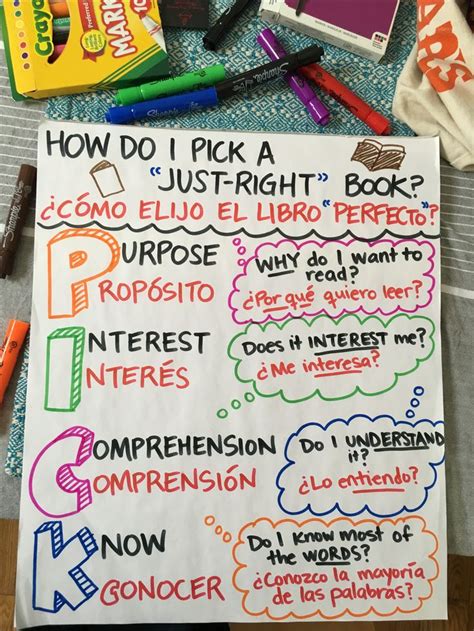 Crayola
MARK
10
Sharpie
Sharpie
HOW DO I PICK A
"JUST-RIGHT" BOOK?
¿CÓMO ELIJO EL LIBRO "PERFECTO"?
PURPOSE
PROPÓSITO
WHY do I want to
read?
¿Por qué quiero leer?
INTEREST
INTERÉS
Does it INTEREST me?
¿Me interesa?
COMPREHENSION
COMPRENSIÓN
Do I UNDERSTAND
it?
¿Lo entiendo?
KNOW
CONOCER
Do I KNOW most of
the WORDS?
¿Conozco la mayoría
de las palabras?